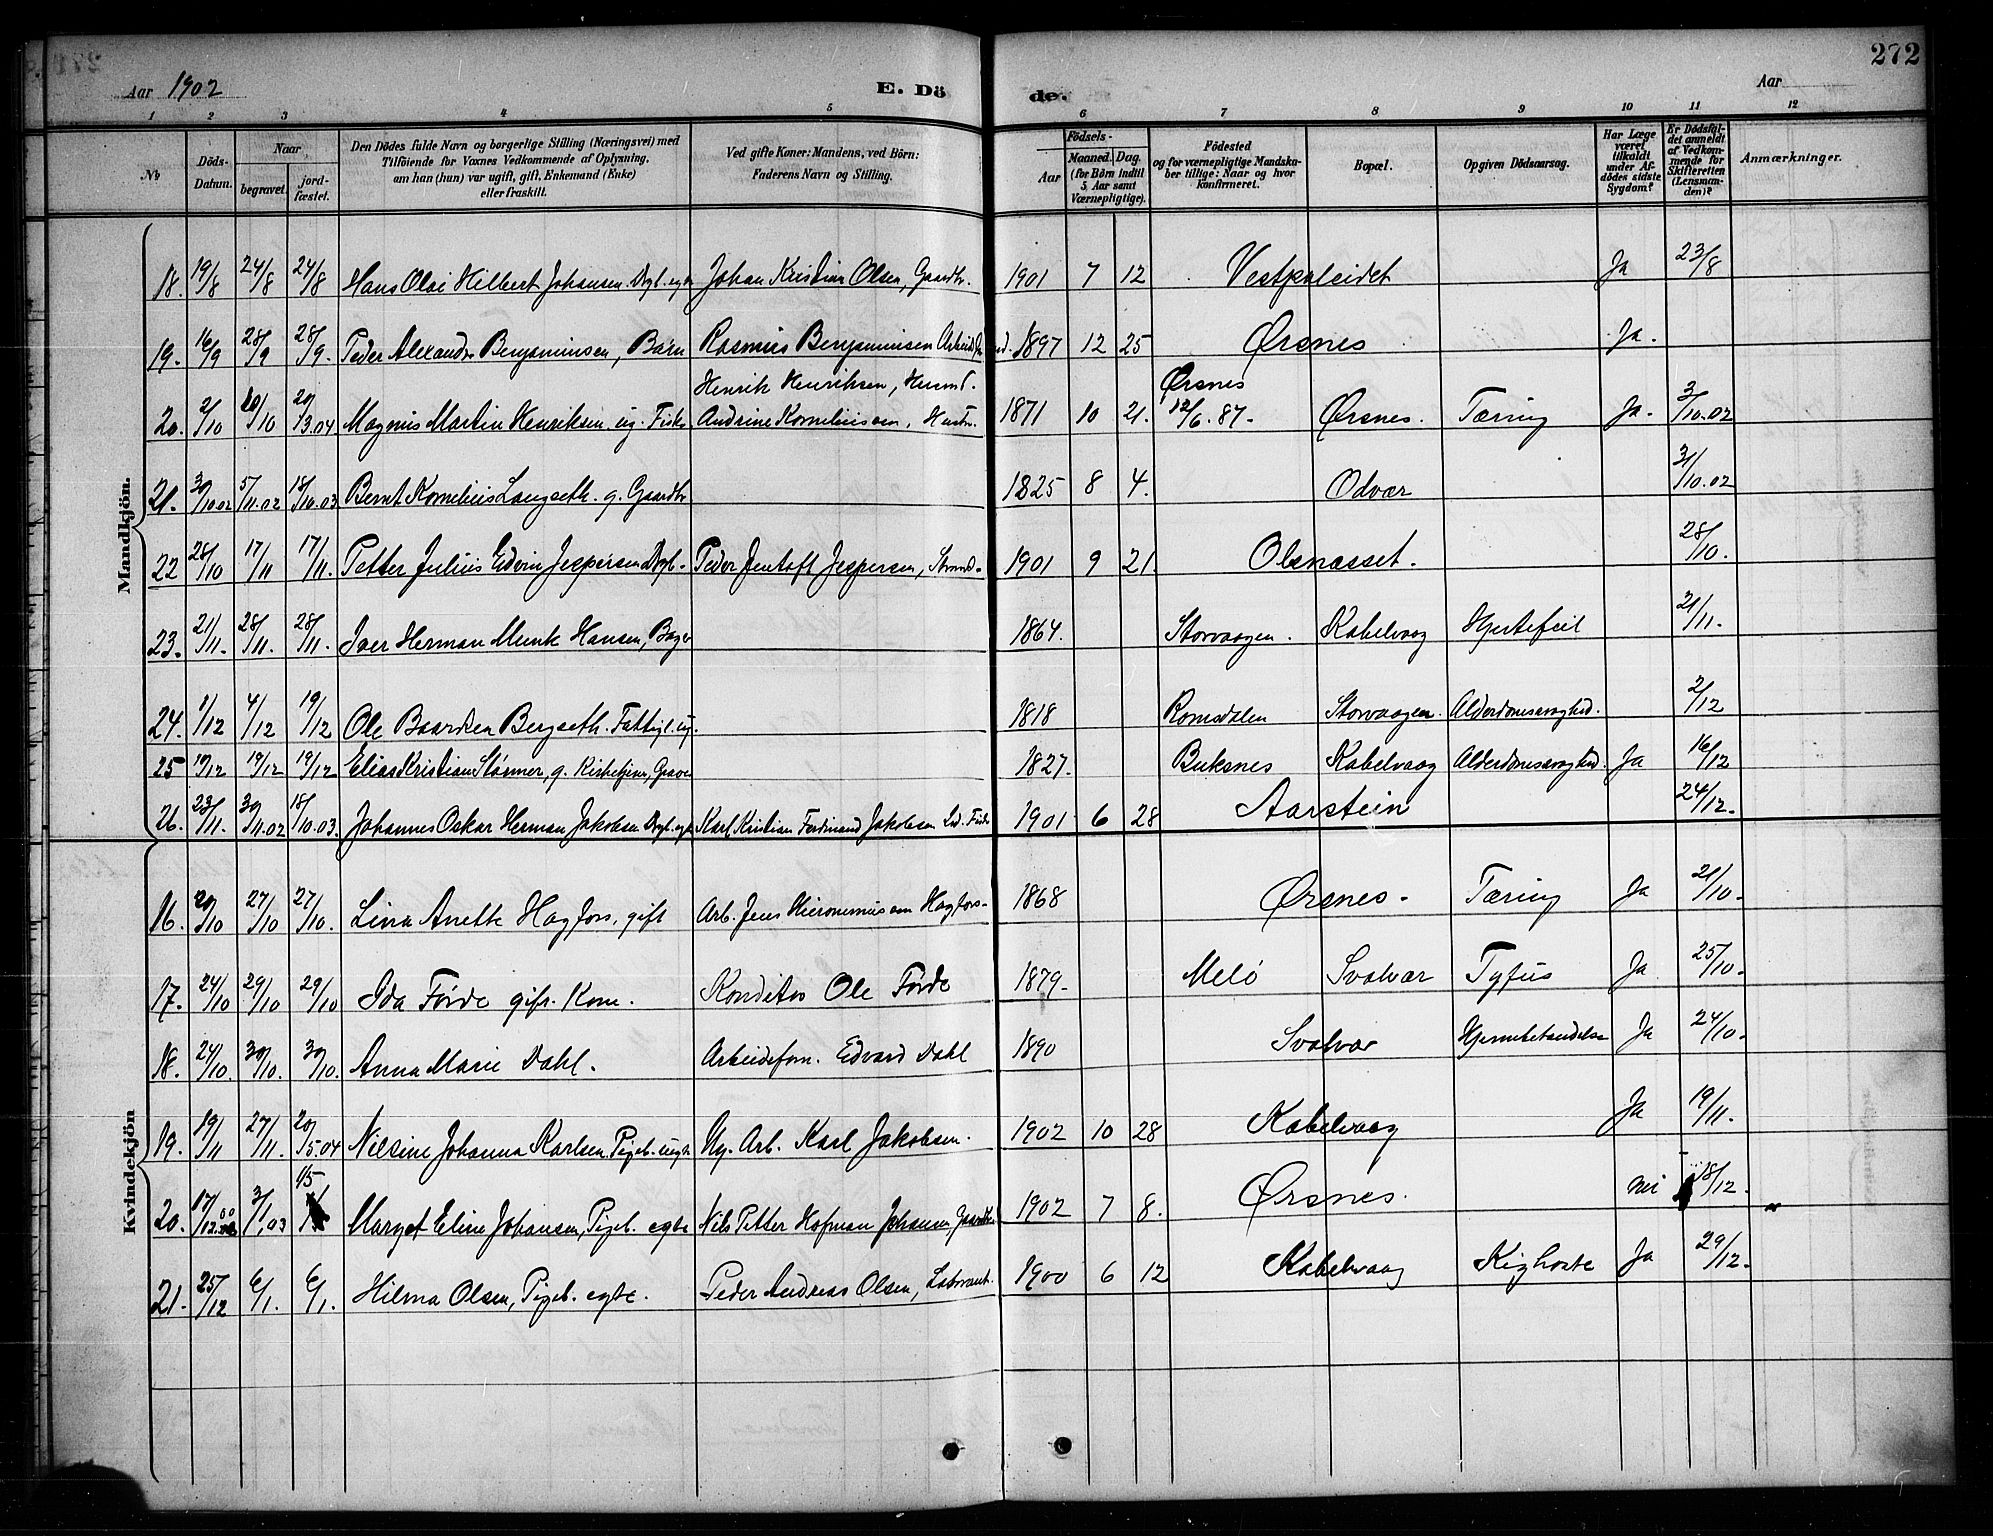 Aar 1902 E. Dö de. Aar 272
1 2 3 4 5 6 7 8 9 10 11 12
No Döds-Datum. Naar begravet. jord-fæstet. Den Dödes fulde Navn og borgerlige Stilling (Næringsvei) med Tilföiende for Voxnes Vedkommende af Oplysning, om han (hun) var ugift, gift, Enkemand (Enke) eller fraskilt. Ved gifte Koner: Mandens, ved Börn: Faderens Navn og Stilling. Födsels- Aar Maaned. Dag. (for Börn indtil 5 Aar samt Værnepligtige). Födested og for værnepligtige Mandskaber tillige: Naar og hvor konfirmeret. Bopæl. Opgiven Dödsaarsag. Har Læge været tilkaldt under Afdödes sidste Sygdom? Er Dödsfaldet anmeldt af Vedkommende for Skifteretten (Lensmanden)? Anmærkninger.
Mandkjön.
18. 19/8 24/8 24/8 Hans Olai Hilbert Johansen. Dgb. egte Johan Kristian Olsen, Gaardbr. 1901 7 12 Vestpoleidet Ja 23/8
19. 16/9 28/9 28/9. Peder Alexander Benjaminsen, Barn Rasmus Benjaminsen 1897 12 25 Ørsnes Ja.
20. 2/10 20/10 20/3.04 Magnus Martin Henriksen ug. Fisker Henrik Henriksen, Husmd. Andrine Korneliussen, Hustr. 1871 10 21. Ørsnes 12/6.87. Ørsnes. Tæring Ja. 3/10.02
21. 30/10.02 5/11.02 18/10.03 Bernt Kornelius Langseth. g. Gaardbr 1825 8 4. Odvær 31/10.02
22 28/10 17/11 17/11. Petter Julius Edvin Jespersen Dgb. Peder Jentoft Jespersen, Strand- 1901 9 21 Olsnasset. 28/10.
23. 21/11. 28/11. 28/11. Iver Herman Munk Hansen, Bager 1864. Storvaagen. Kabelvaag Hjertefeil 21/11.
24. 1/12 4/12 19/12 Ole Baardsen Bergseth. Fattigl. ug. 1818 Romsdalen Storvaagen. Alderdomssvaghed. 2/12
25 10/12 19/12 19/12 Elias Kristian Størmer, g. Kirketjener, Graver 1827. Buksnes Kabelvaag Alderdomssvaghed. Ja 16/12
26. 23/11. 30/11.02 18/10.03. Johannes Oskar Herman Jakobsen Dgb. egte Karl Kristian Ferdinand Jakobsen 1901 6 28 Aarstein 24/12.
Kvindekjön
16. 20/10 27/10 27/10. Lina Anette Hagfors, gift Arb. Jens Hieronimussen Hagfors- 1868 Ørsnes. Tæring Ja 21/10.
17. 24/10 29/10 29/10 Ida Førde gift. Kone. Konditor Ole Førde 1879. Melö Svolvær Tyfus Ja 25/10.
18. 24/10. 30/10. 30/10. Anna Marie Dahl. Arbeidsform. Edvard Dahl 1890 Svolvær Hjernebetændelse Ja 24/10.
19. 19/11 27/11. 20/5.04 Nilsine Johanna Karlsen Pigeb. uegte Ug. Arb. Karl Jakobsen. 1902 10 28 Kabelvaag Ja 19/11.
20. 17/12 3/1.03 Marget Eline Johansen, Pigeb. egte Nils Petter Hofman Johansen Gaardbr 1902 7 8. Ørsnes. nei 18/12.
21. 25/12 6/1. 6/1. Hilma Olsen, Pigeb. egte. Peder Andreas Olsen, 1900 6 12 Kabelvaag Kighoste Ja 29/12.